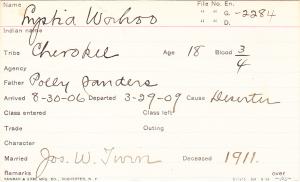 Name Lystia Wahoo File No. En.
" " G. -2284
" " D.
Indian name
Tribe Cherokee Age 18 Blood 3/4
Agency
Father Polly Sanders
Arrived 8-30-06 Departed 3-29-09 Cause Deserter
Class entered Class left
Trade Outing
Character
Married Jos. W. Twin Deceased 1911.
Remarks over